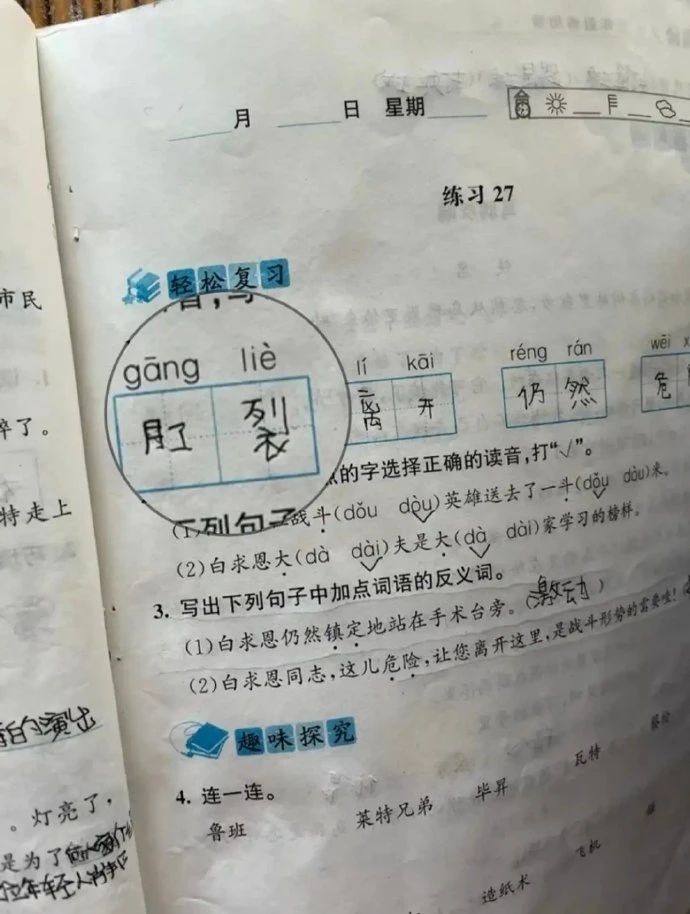 市民
了。
特走上
的演出
。灯亮了,
是为了
月 日 星期
练习 27
轻松复习
gāng liè lí kāi réng rán wēi
肛裂 离开 仍然 危
的字选择正确的读音,打“√”。
(1) 战斗(dǒu dòu)英雄送去了一斗(dǒu dòu)米。
(2)白求恩大(dà dài)夫是大(dà dài)家学习的榜样。
3. 写出下列句子中加点词语的反义词。
(1)白求恩仍然镇定地站在手术台旁。(激动)
(2)白求恩同志,这儿危险,让您离开这里,是战斗形势的需要哇!
趣味探究
4. 连一连。
鲁班 莱特兄弟 毕昇 瓦特 蔡伦
造纸术 飞机